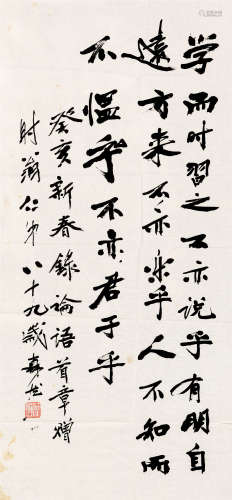 学而时習之不亦说乎有朋自
遠方来不亦乐乎人不知而
不愠乎不亦君子乎
癸亥新春錄論语首章赠
时翁仁弟 八十九歲